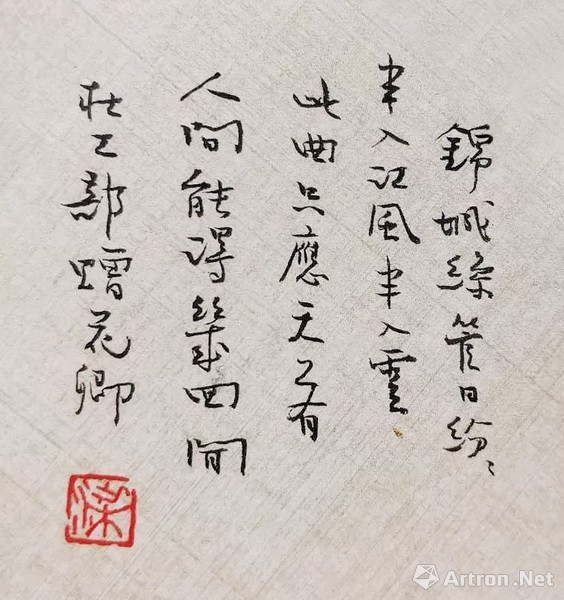 錦城絲管日紛〻
半入江風半入雲
此曲只應天上有
人間能得幾回聞
杜工部贈花卿
Artron.Net